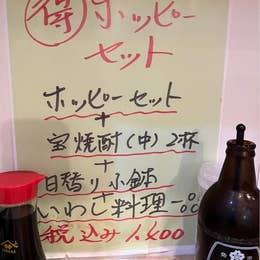 得 ホッピー
セット
ホッピーセット
+
宝焼酎(中)2杯
+
日替り小鉢
+
いわし料理一品
税込み1,400